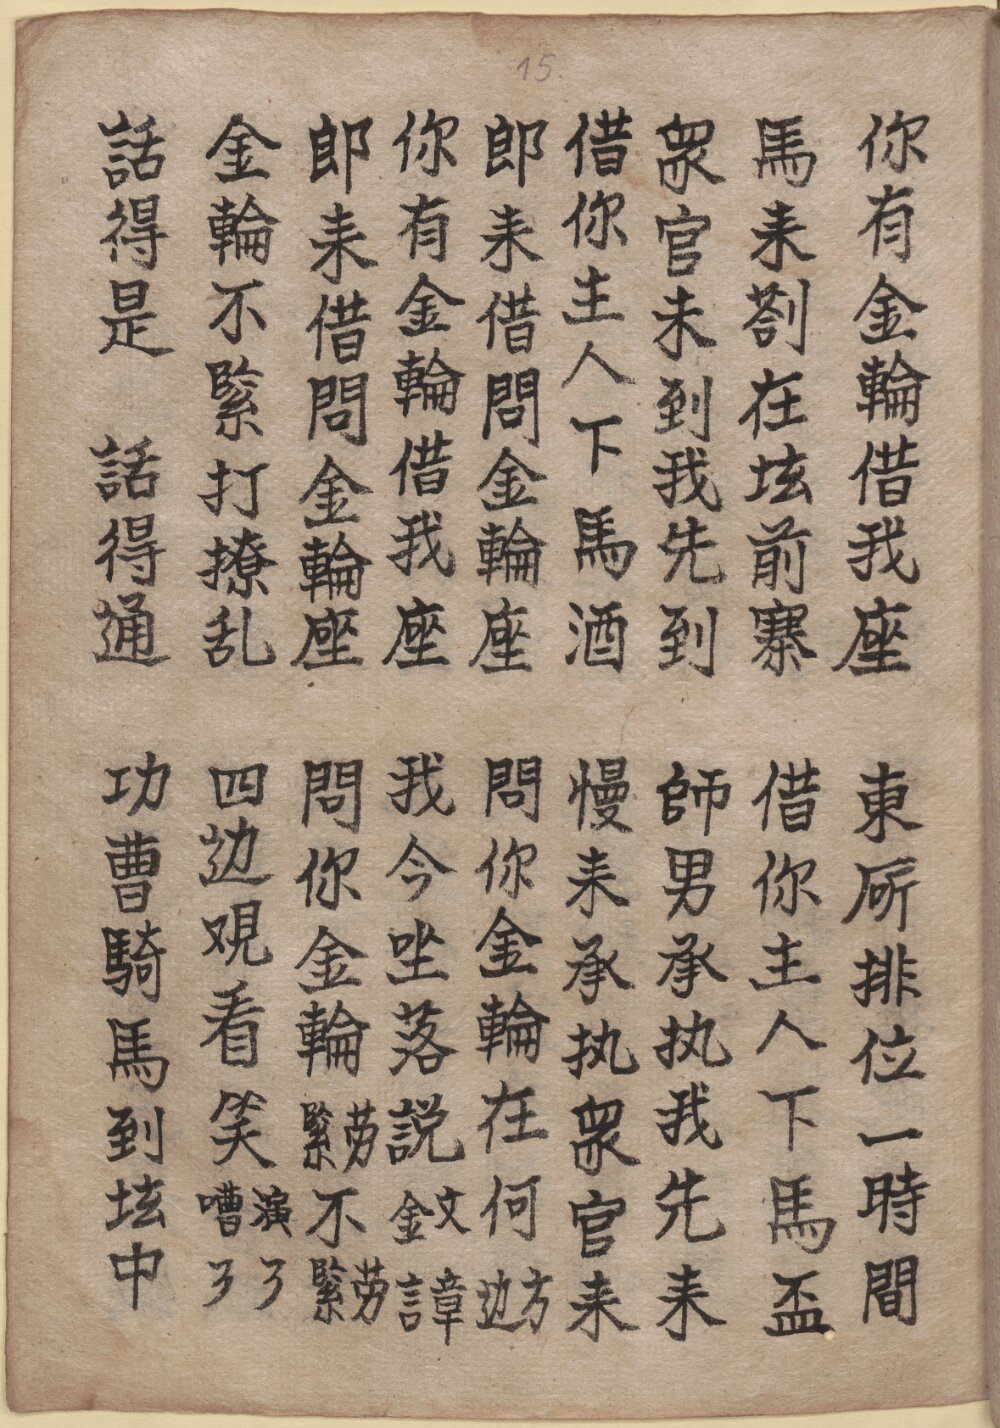 15.
你有金輪借我座　東厛排位一時間
馬来劄在坛前寨　借你主人下馬盃
衆官未到我先到　師男承执我先来
借你主人下馬酒　慢来承执衆官来
郎来借問金輪座　問你金輪在何方边
你有金輪借我座　我今坐落説文章金言
郎来借問金輪座　問你金輪緊劳不緊劳
金輪不緊打撩乱　四边观看笑演了嘈了
話得是　話得通　功曹騎馬到坛中